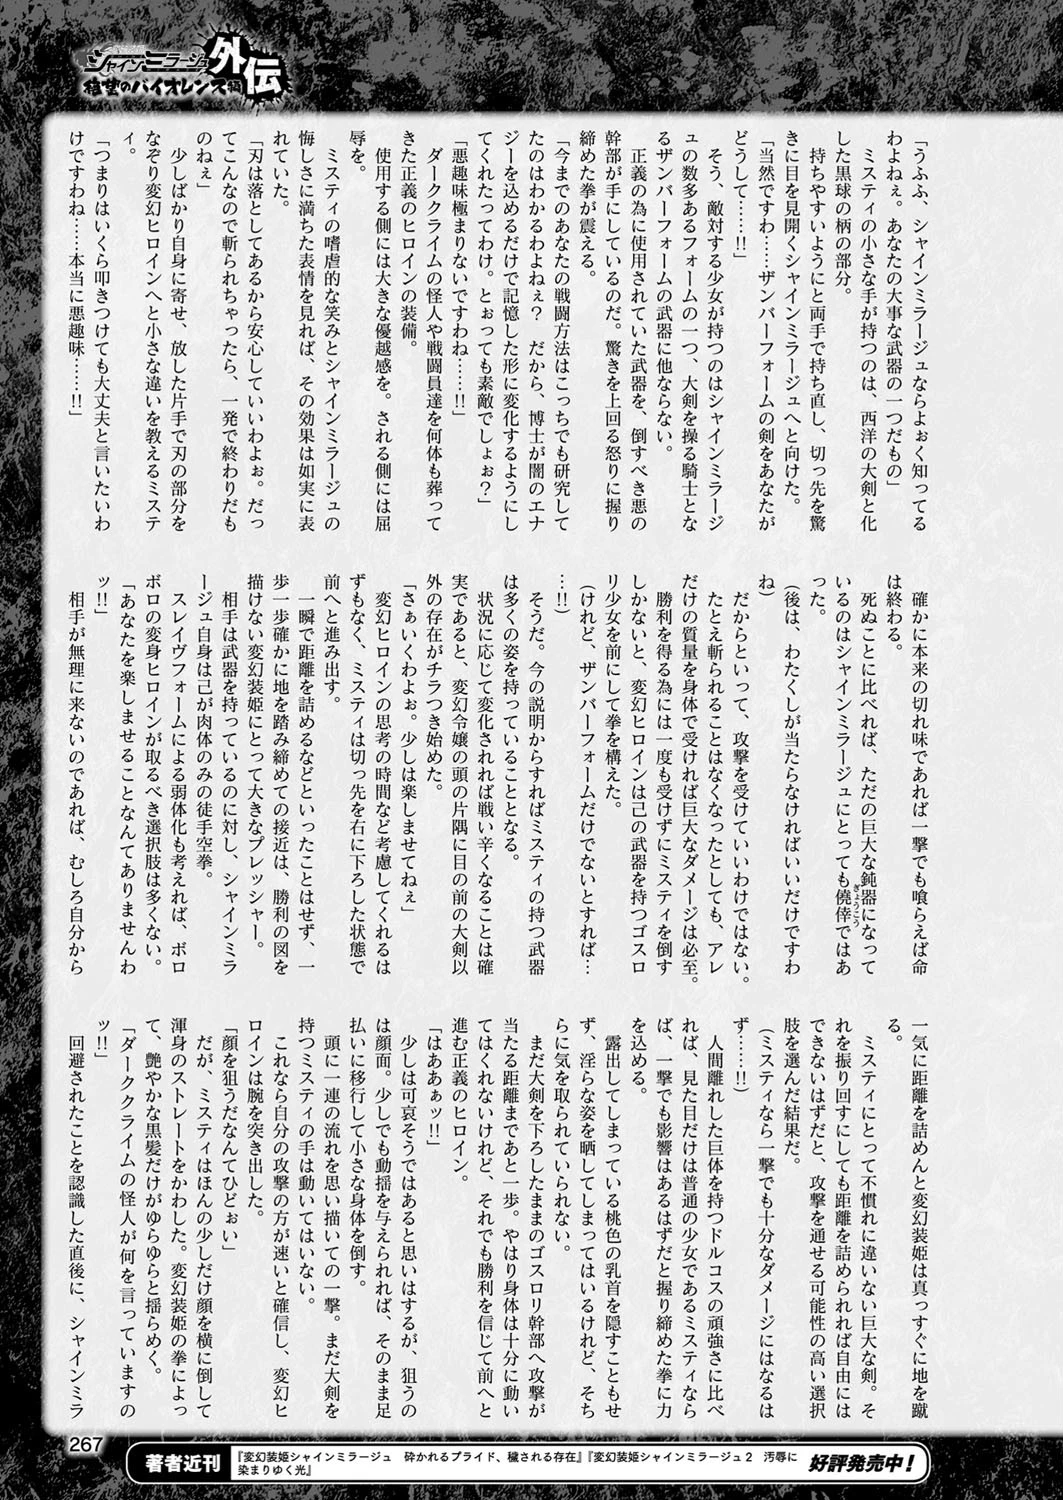 シャインミラージュ外伝
絶望のバイオレンス編
「うふふ、シャインミラージュならよぉく知ってる
わよねぇ。あなたの大事な武器の一つだもの」
ミスティの小さな手が持つのは、西洋の大剣と化
した黒球の柄の部分。
持ちやすいようにと両手で持ち直し、切っ先を驚
きに目を見開くシャインミラージュへと向けた。
「当然ですわ……ザンバーフォームの剣をあなたが
どうして……‼」
そう、敵対する少女が持つのはシャインミラージ
ュの数多あるフォームの一つ、大剣を操る騎士とな
るザンバーフォームの武器に他ならない。
正義の為に使用されていた武器を、倒すべき悪の
幹部が手にしているのだ。驚きを上回る怒りに握り
締めた拳が震える。
「今までのあなたの戦闘方法はこっちでも研究して
たのはわかるわよねぇ？　だから、博士が闇のエナ
ジーを込めるだけで記憶した形に変化するようにし
てくれたってわけ。とぉっても素敵でしょぉ？」
「悪趣味極まりないですわね……‼」
ダーククライムの怪人や戦闘員達を何体も葬って
きた正義のヒロインの装備。
使用する側には大きな優越感を。される側には屈
辱を。
ミスティの嗜虐的な笑みとシャインミラージュの
悔しさに満ちた表情を見れば、その効果は如実に表
れていた。
「刃は落としてあるから安心していいわよぉ。だっ
てこんなので斬られちゃったら、一発で終わりだも
のねぇ」
少しばかり自身に寄せ、放した片手で刃の部分を
なぞり変幻ヒロインへと小さな違いを教えるミステ
ィ。
「つまりはいくら叩きつけても大丈夫と言いたいわ
けですわね……本当に悪趣味……‼」
確かに本来の切れ味であれば一撃でも喰らえば命
は終わる。
死ぬことに比べれば、ただの巨大な鈍器になって
いるのはシャインミラージュにとっても僥倖ではあ
った。
（後は、わたくしが当たらなければいいだけですわ
ね）
だからといって、攻撃を受けていいわけではない。
たとえ斬られることはなくなったとしても、アレ
だけの質量を身体で受ければ巨大なダメージは必至。
勝利を得る為には一度も受けずにミスティを倒す
しかないと、変幻ヒロインは己の武器を持つゴスロ
リ少女を前にして拳を構えた。
（けれど、ザンバーフォームだけでないとすれば…
…‼）
そうだ。今の説明からすればミスティの持つ武器
は多くの姿を持っていることとなる。
状況に応じて変化されれば戦い辛くなることは確
実であると、変幻令嬢の頭の片隅に目の前の大剣以
外の存在がチラつき始めた。
「さぁいくわよぉ。少しは楽しませてねぇ」
変幻ヒロインの思考の時間など考慮してくれるは
ずもなく、ミスティは切っ先を右に下ろした状態で
前へと進み出す。
一瞬で距離を詰めるなどといったことはせず、一
歩一歩確かに地を踏み締めての接近は、勝利の図を
描けない変幻装姫にとって大きなプレッシャー。
相手は武器を持っているのに対し、シャインミラ
ージュ自身は己が肉体のみの徒手空拳。
スレイヴフォームによる弱体化も考えれば、ボロ
ボロの変身ヒロインが取るべき選択肢は多くない。
「あなたを楽しませることなんてありませんわ
ッ‼」
相手が無理に来ないのであれば、むしろ自分から
一気に距離を詰めんと変幻装姫は真っすぐに地を蹴
る。
ミスティにとって不慣れに違いない巨大な剣。そ
れを振り回すにしても距離を詰められれば自由には
できないはずだと、攻撃を通せる可能性の高い選択
肢を選んだ結果だ。
（ミスティなら一撃でも十分なダメージにはなるは
ず……‼）
人間離れした巨体を持つドルコスの頑強さに比べ
れば、見た目だけは普通の少女であるミスティなら
ば、一撃でも影響はあるはずだと握り締めた拳に力
を込める。
露出してしまっている桃色の乳首を隠すこともせ
ず、淫らな姿を晒してしまってはいるけれど、そち
らに気を取られていられない。
まだ大剣を下ろしたままのゴスロリ幹部へ攻撃が
当たる距離まであと一歩。やはり身体は十分に動い
てはくれないけれど、それでも勝利を信じて前へと
進む正義のヒロイン。
「はああぁッ‼」
少しは可哀そうではあると思いはするが、狙うの
は顔面。少しでも動揺を与えられれば、そのまま足
払いに移行して小さな身体を倒す。
頭に一連の流れを思い描いての一撃。まだ大剣を
持つミスティの手は動いてはいない。
これなら自分の攻撃の方が速いと確信し、変幻ヒ
ロインは腕を突き出した。
「顔を狙うだなんてひどぉい」
だが、ミスティはほんの少しだけ顔を横に倒して
渾身のストレートをかわした。変幻装姫の拳によっ
て、艶やかな黒髪だけがゆらゆらと揺らめく。
「ダーククライムの怪人が何を言っていますの
ッ‼」
回避されたことを認識した直後に、シャインミラ
267
著者近刊
『変幻装姫シャインミラージュ　砕かれるプライド、穢される存在』『変幻装姫シャインミラージュ２　汚辱に
染まりゆく光』
好評発売中！